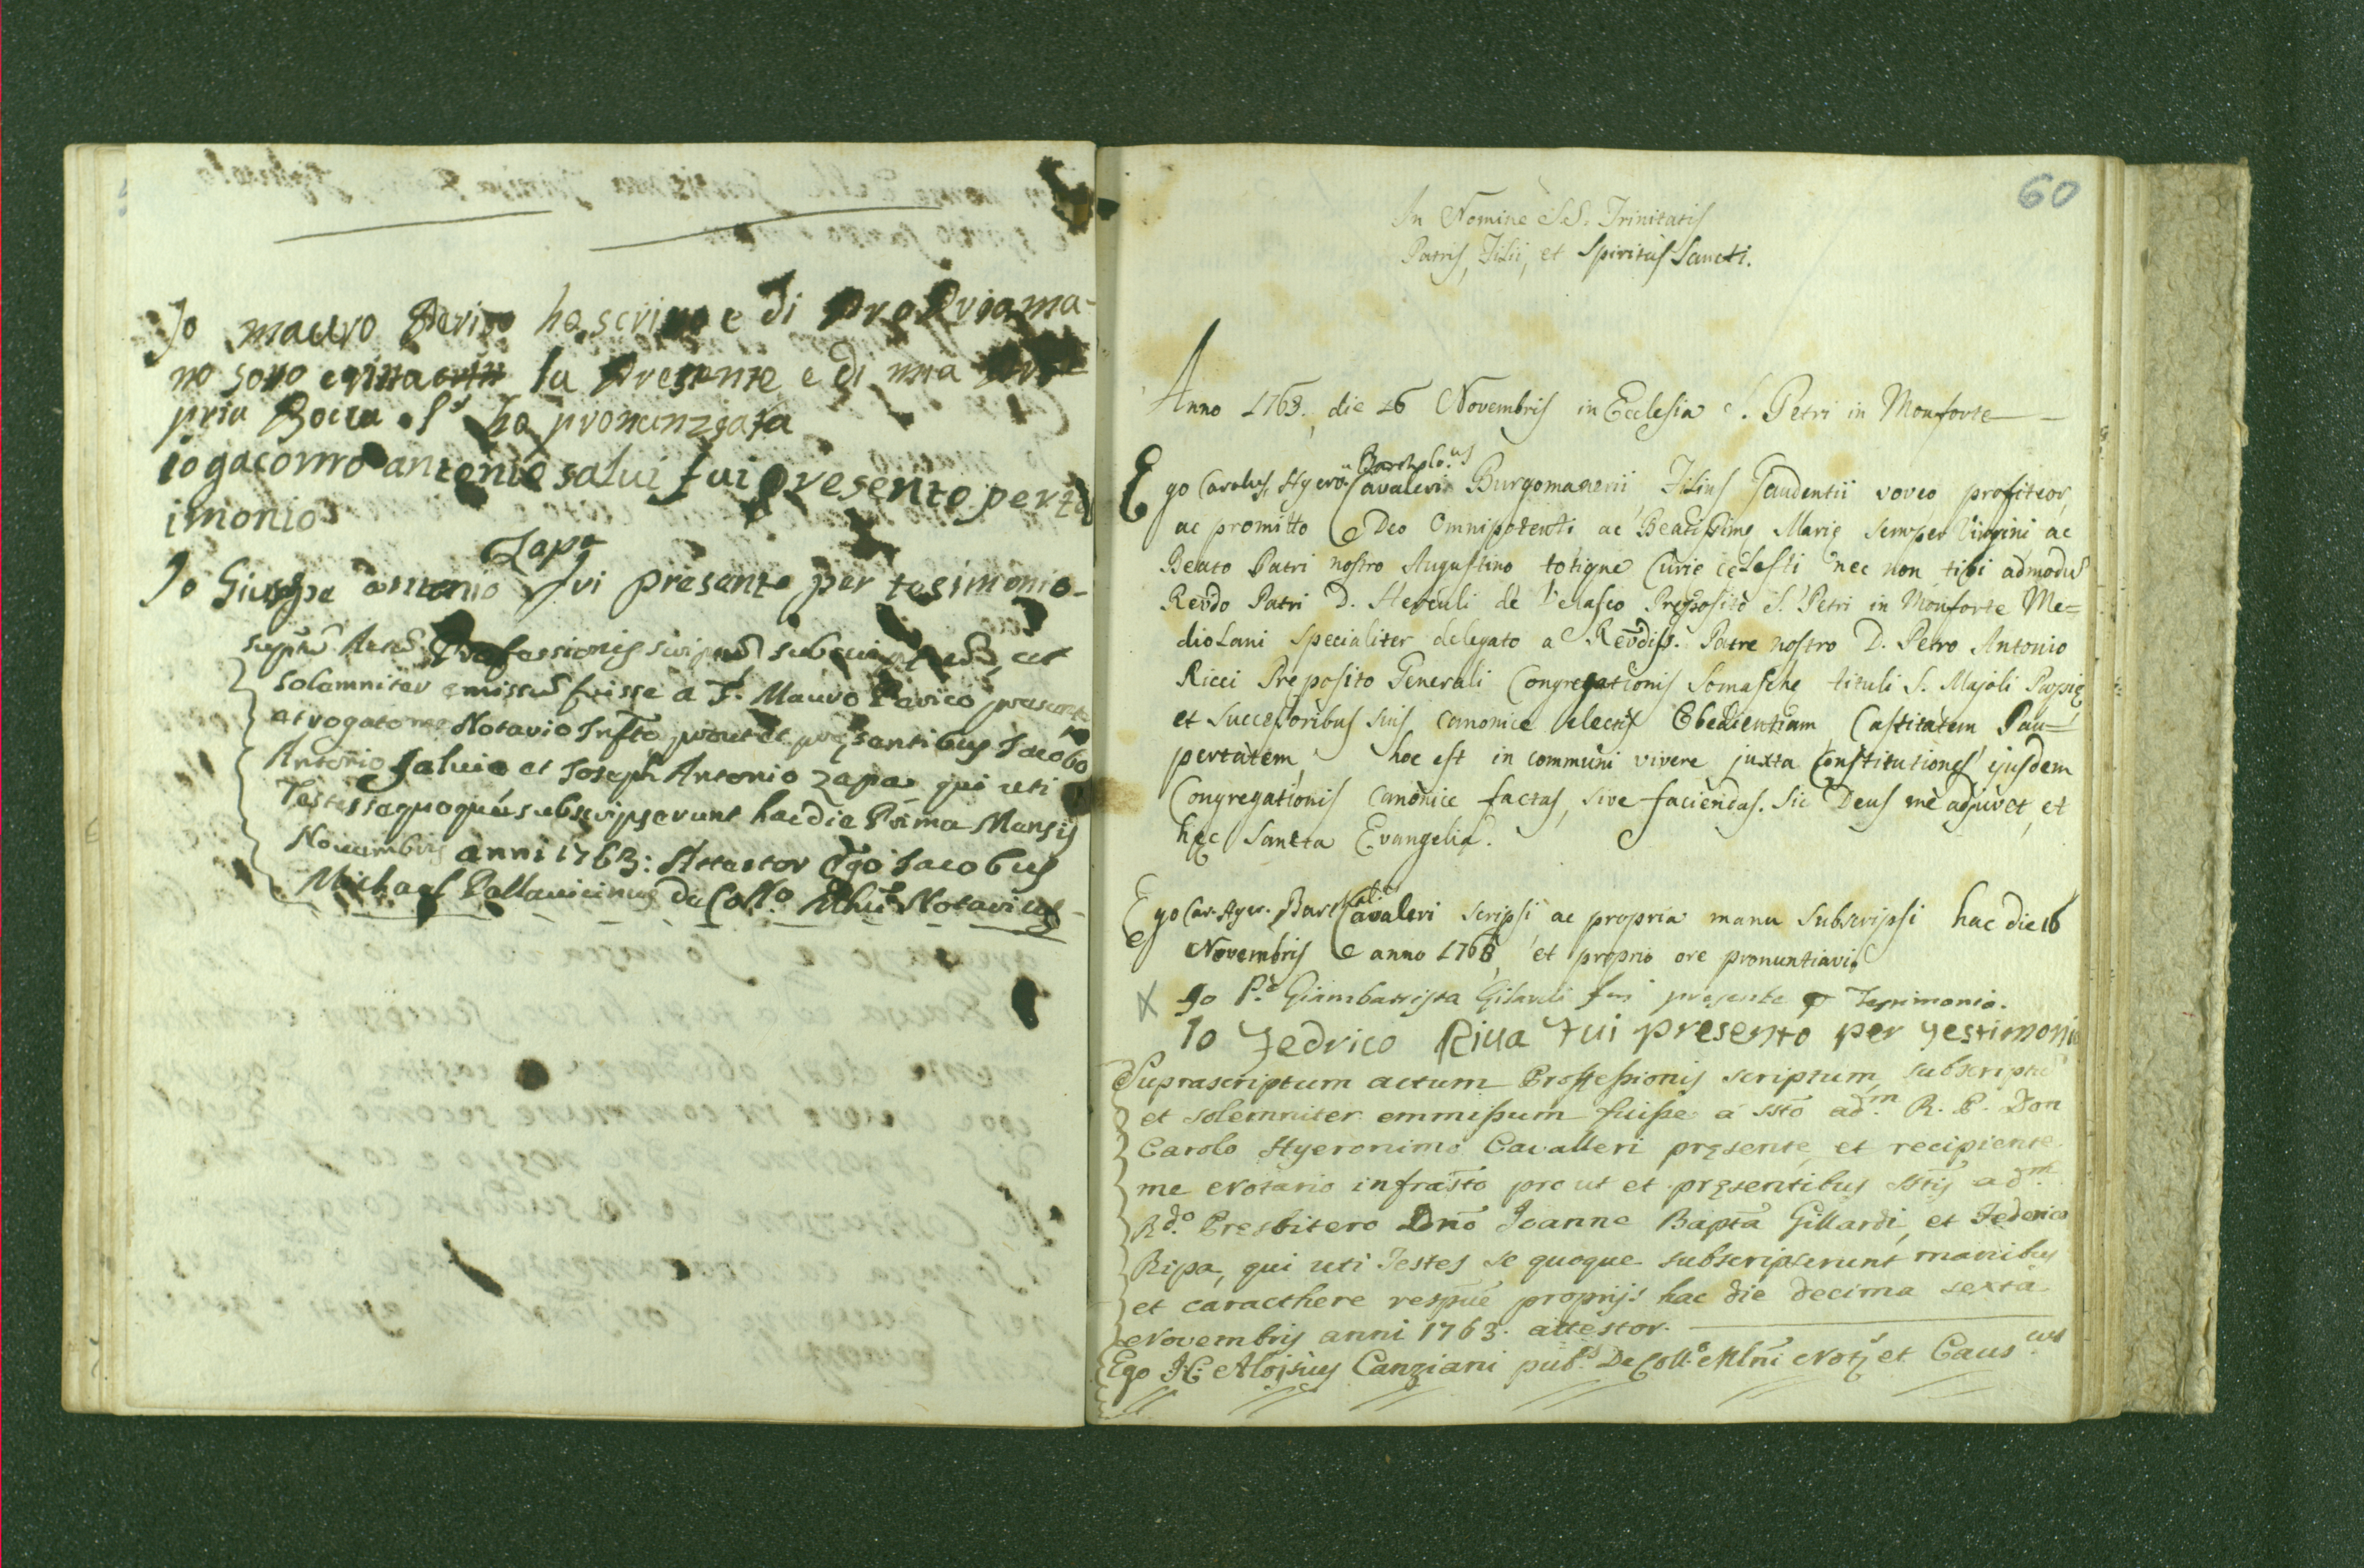 Io mauro Parico ho scritto e di propria ma-
no sotto la presente e di mia pro-
pria Bocca l' ho pronunziata
io gacomo antonio salui fui presente per test
imonio
Zapa
Io Giuseppe antonio fui presente per tesimonio-
supt.m Actum Professionis scriptum subscriptum, ac
solemniter emissum fuisse a F. Mauro Parico presente
et rogato me Notario Infto prout et presentibus Iacobo
Antonio Saluio et Ioseph Antonio Zapa qui uti
Testes se quoque subscripserunt hac die Prima Mensis
Nouembris anni 1763: Attestor Ego Iacobus
Michael Pallauicinus de Coll.o Notarius
60
In Nomine SS. Trinitatis
Patris, Filii, et Spiritus Sancti.
Anno 1763, die 16 Novembris in Ecclesia S. Petri in Monforte
Bartholo.us
Ego Carolus Hyero.us Cavaleri Burgomanerii Filius Gaudentii voveo profiteor,
ac promitto Deo Omnipotenti ac Beatissime Marie semper Virgini ac
Beato Patri nostro Augustino totique Curie celesti nec non tibi admodu
Revdo Patri D. Herculi de Velasco Preposito S. Petri in Monforte Me=
diolani specialiter delegato a Revdiss. Patre nostro D. Petro Antonio
Ricci Preposito Generali Congregationis Somasche tituli S. Majoli Papię
et successoribus suis canonice electis Obedientiam, Castitatem Pau=
pertatem, hoc est in communi vivere juxta Constitutiones ejusdem
Congregationis canonice factas, sive faciendas. Sic Deus me adjuvet, et
hęc Sancta Evangelia.
Ego Car. Hyer. Barth. Cavaleri scripsi, ac propria manu subscripsi hac die 16
Novembris anno 1763, et proprio ore pronuntiavi
X Io P.e Giambattista Gilardi fui presente p Testimonio.
Io Fedrico Riua fui presento per testimonio
Suprascriptum actum Proffessionis scriptum, subscriptu
et solemniter emmissum fuisse a ssto ad.m R. P. Don
Carolo Hyeronimo Cavalleri pręsente, et recipiente
me Notario infrasto pro ut et pręsentibus sstis ad.m
R.do Presbitero Dno Ioanne Bapta Gillardi, et Federico
Ripa, qui uti Testes se quoque subscripserunt manibus
et caracthere respue proprijs hac die decima sexta
Novembris anni 1763. attestor.
Ego I.C. Aloisius Canziani pub.s De Coll.o Mlni Not.s et Caus.cus